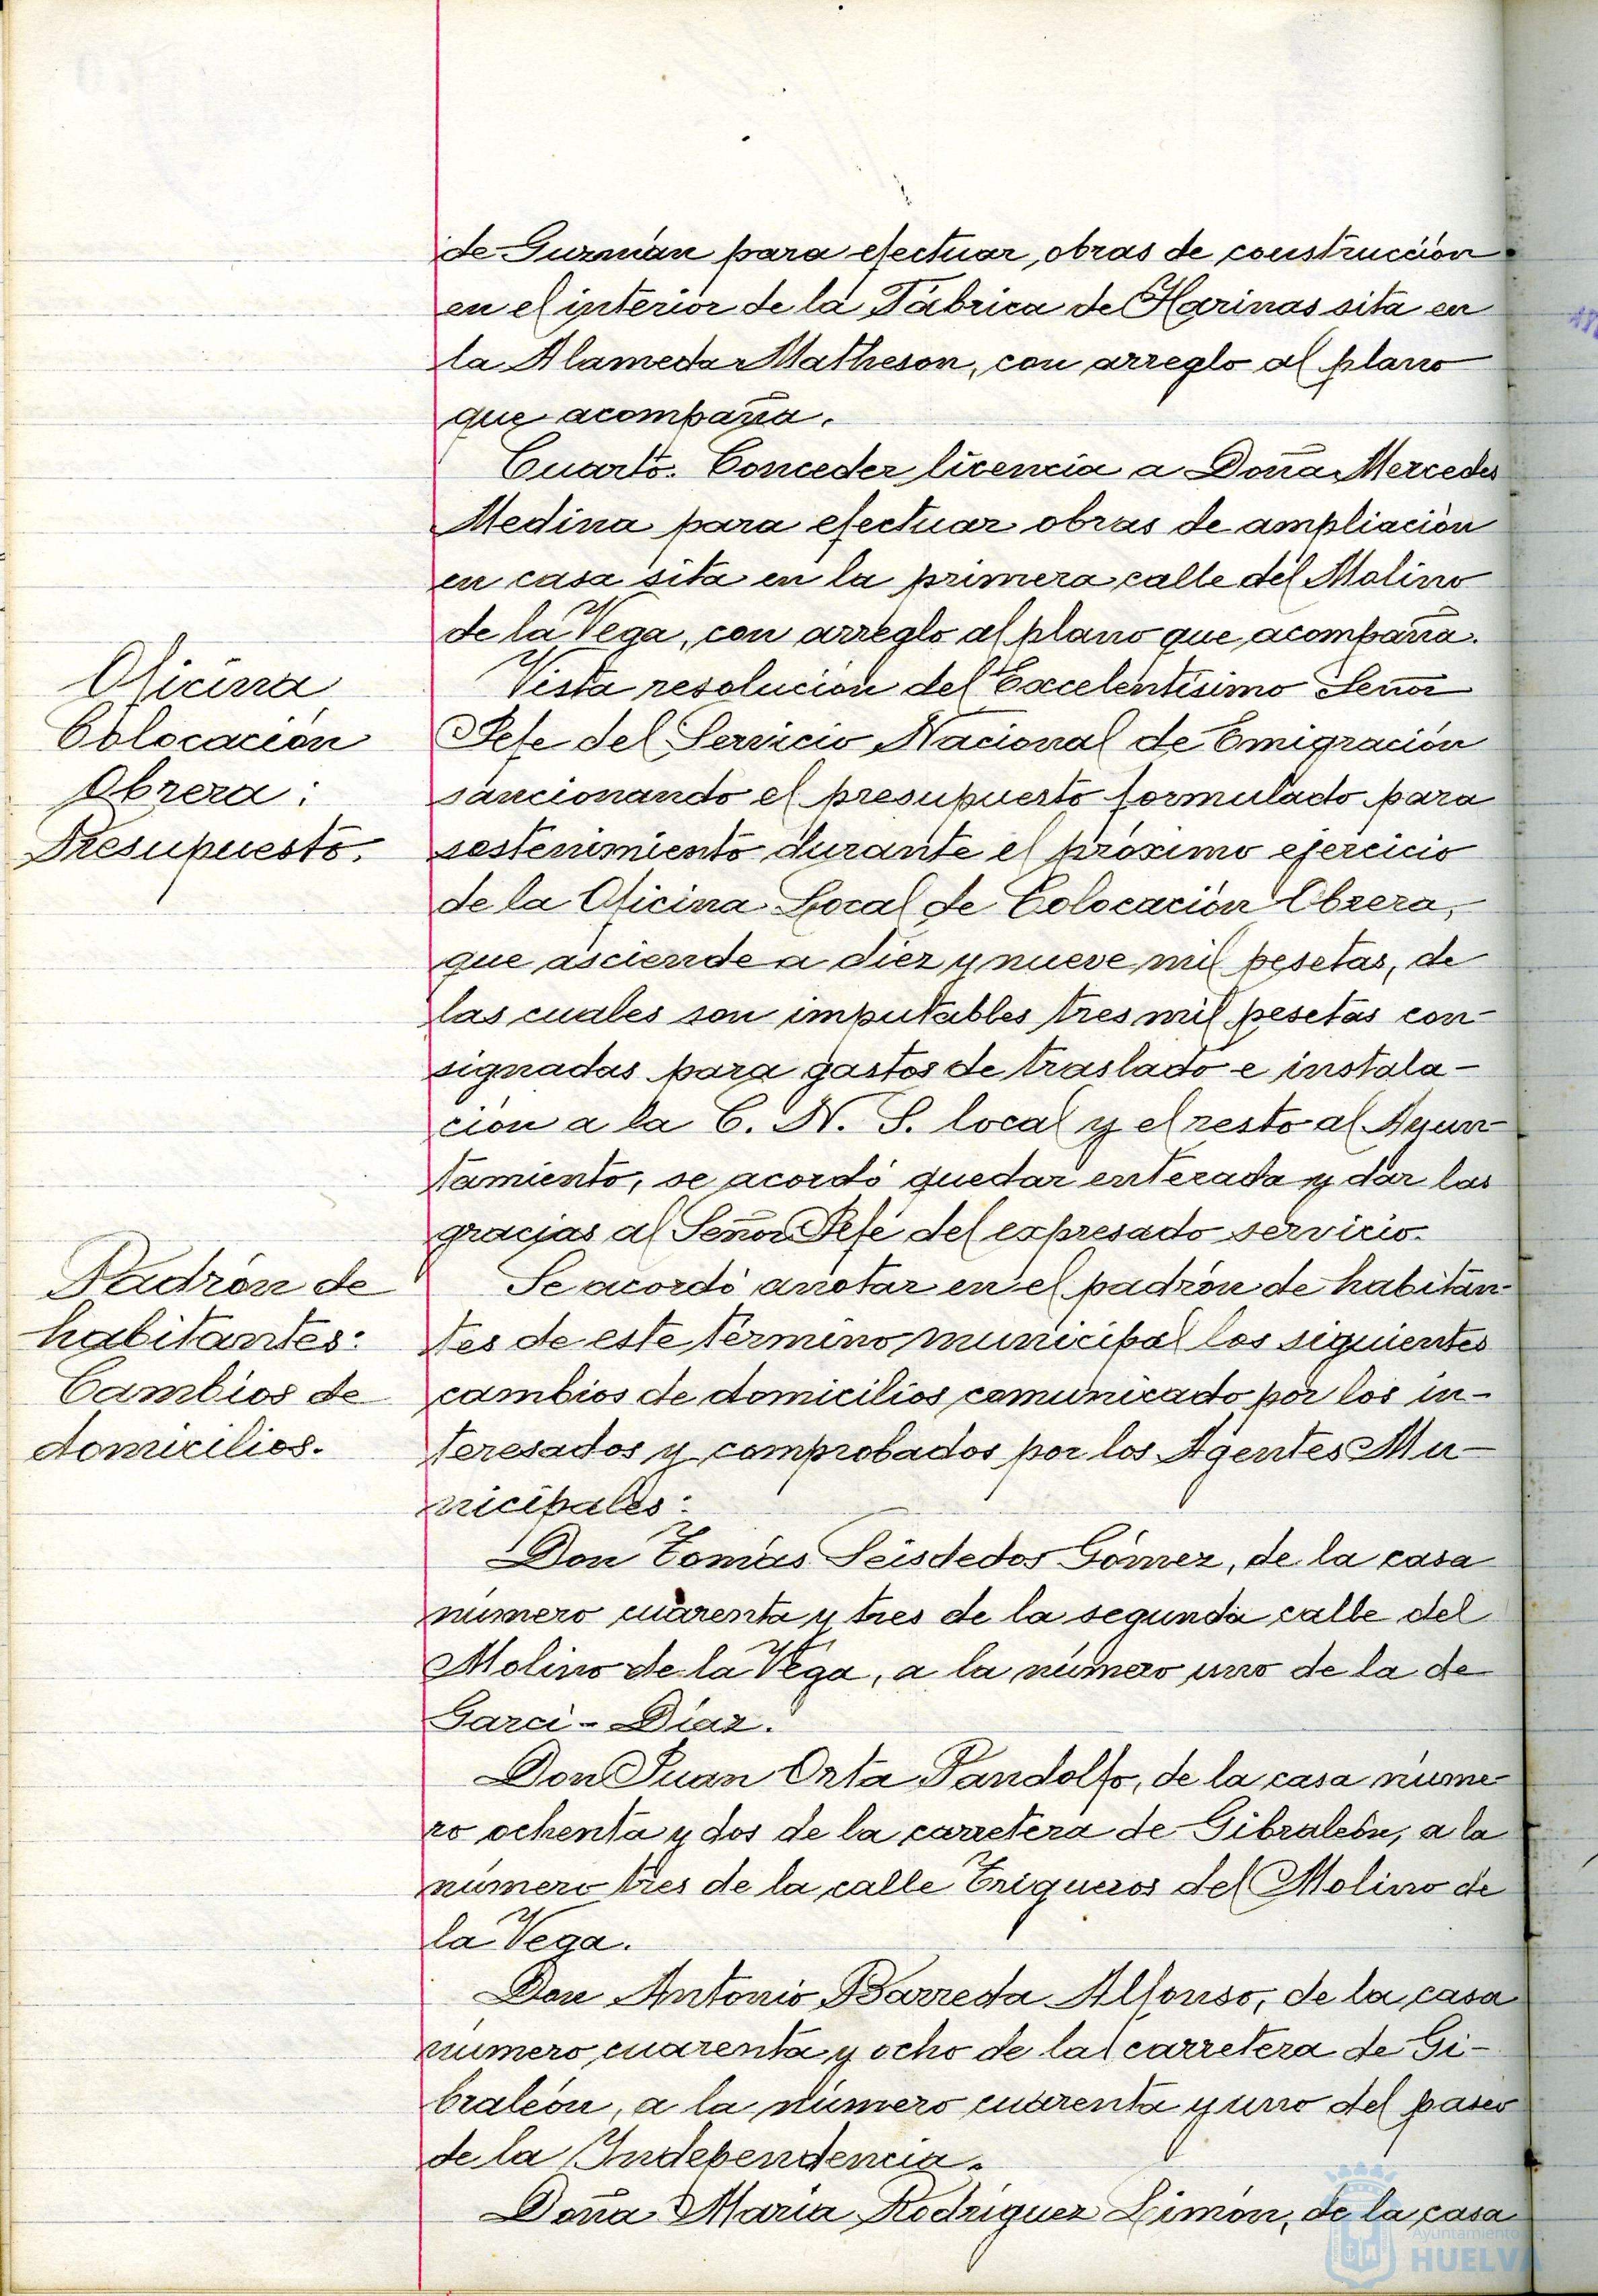 de Guzmán para efectuar, obras de construcción
en el interior de la Fábrica de Harinas sita en
la Alameda Matheson, con arreglo al plano
que acompaña.
Cuarto. Conceder licencia a Doña Mercedes
Medina para efectuar obras de ampliación
en casa sita en la primera calle del Molino
de la Vega, con arreglo al plano que acompaña.
Oficina
Colocación
Obrera:
Presupuesto.
Vista resolución del Excelentísimo Señor
Jefe del Servicio Nacional de Emigración
sancionando el presupuesto formulado para
sostenimiento durante el próximo ejercicio
de la Oficina Local de Colocación Obrera,
que asciende a diez y nueve mil pesetas, de
las cuales son imputables tres mil pesetas con-
signadas para gastos de traslado e instala-
ción a la C. N. S. local y el resto al Ayun-
tamiento, se acordó quedar enterada y dar las
gracias al Señor Jefe del expresado servicio.
Padrón de
habitantes:
Cambios de
domicilios.
Se acordó anotar en el padrón de habitan-
tes de este término municipal los siguientes
cambios de domicilios comunicado por los in-
teresados y comprobados por los Agentes Mu-
nicipales:
Don Tomás Seisdedos Gómez, de la casa
número cuarenta y tres de la segunda calle del
Molino de la Vega, a la número uno de la de
Garci-Díaz.
Don Juan Orta Pandolfo, de la casa núme-
ro ochenta y dos de la carretera de Gibraleón, a la
número tres de la calle Trigueros del Molino de
la Vega.
Don Antonio Barreda Alfonso, de la casa
número cuarenta y ocho de la carretera de Gi-
braleón, a la número cuarenta y uno del paseo
de la Independencia.
Doña María Rodríguez Limón, de la casa
Ayuntamiento
HUELVA